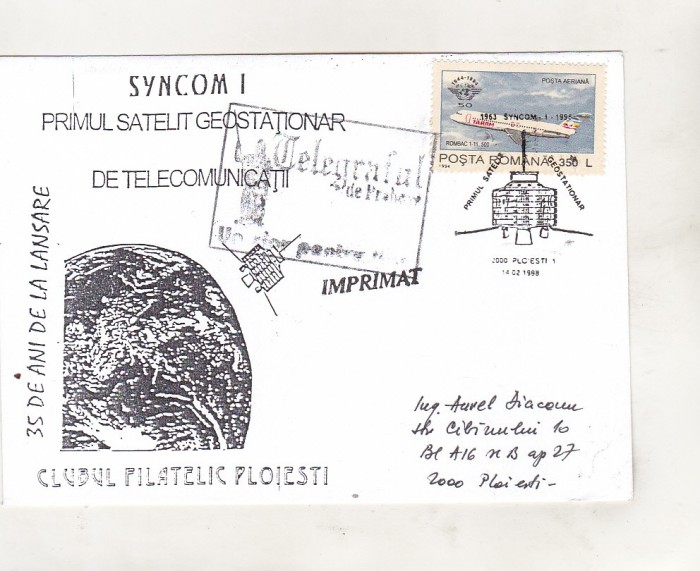 SYNCOM I
PRIMUL SATELIT GEOSTAȚIONAR
DE TELECOMUNICAȚII
35 DE ANI DE LA LANSARE
CLUBUL FILATELIC PLOIEȘTI
Telegraful
de Prahova
Un ziar pentru
IMPRIMAT
1944-1994
50
POȘTA AERIANĂ
1963 SYNCOM-1-1998
TAROM
ROMBAC 1-11, 500
POȘTA ROMÂNĂ 350 L
1994
PRIMUL SATELIT GEOSTAȚIONAR
2000 PLOIESTI 1
14.02 1998
Ing. Aurel Diaconu
str Cibinului 10
Bl A16 sc B ap 27
2000 Ploiesti-